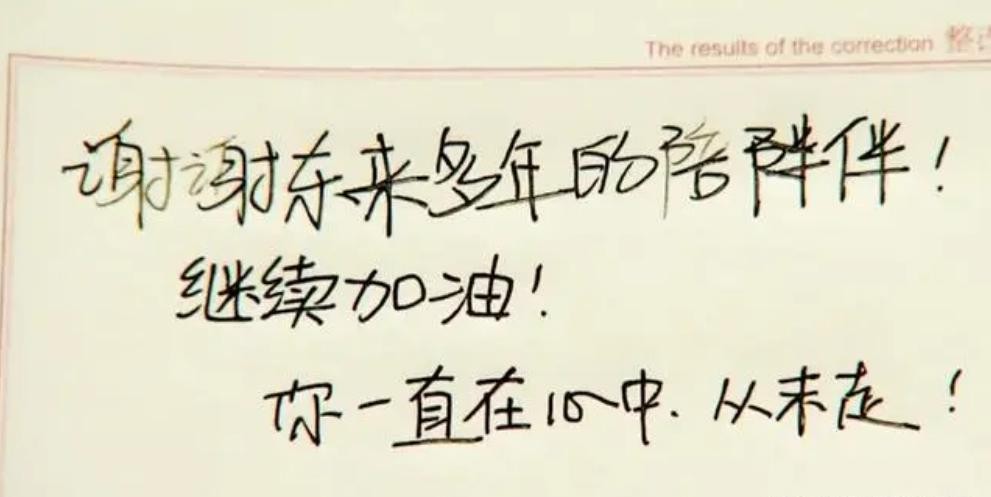 The results of the correction 整改
谢谢东来多年的陪伴!
继续加油!
你一直在心中.从未走!